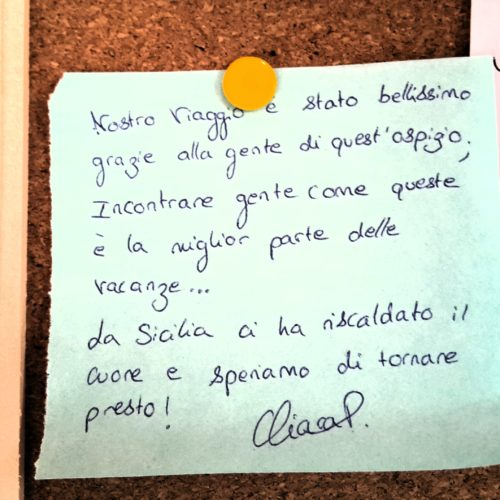 Nostro viaggio è stato bellissimo
grazie alla gente di quest'ospizio;
Incontrare gente come queste
è la miglior parte delle
vacanze...
La Sicilia ci ha riscaldato il
cuore e speriamo di tornare
presto!
Chiara P.